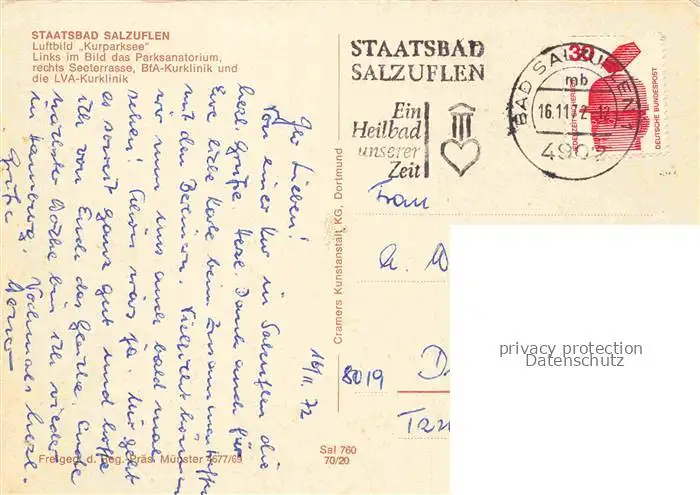 STAATSBAD SALZUFLEN
Luftbild „Kurparksee"
Links im Bild das Parksanatorium,
rechts Seeterrasse, BfA-Kurklinik und
die LVA-Kurklinik
STAATSBAD
SALZUFLEN
Ein
Heilbad
unserer
Zeit
BAD SALZUFLEN 1
mb
16.11.72-12
4902
30
DEUTSCHE BUNDESPOST
16/11 72
Ihr Lieben!
Von einer Kur in Salzuflen die
herzl. Grüße. Herzl. Dank auch für
Eure liebe Karte beim Zusammentreffen
mit den Berlinern. Vielleicht können
wir uns auch bald mal
sehen! Schön wärs ja. Mir geht
es soweit ganz gut und hoffe
ich von Euch das Gleiche. Ende
nächster Woche bin ich wieder
in Hamburg. Nochmals herzl.
Grüße
Frau
A.
8019
Cramers Kunstanstalt KG, Dortmund
Freigeg. d. Reg. Präs. Münster 4677/69
Sal 760
70/20
privacy protection
Datenschutz